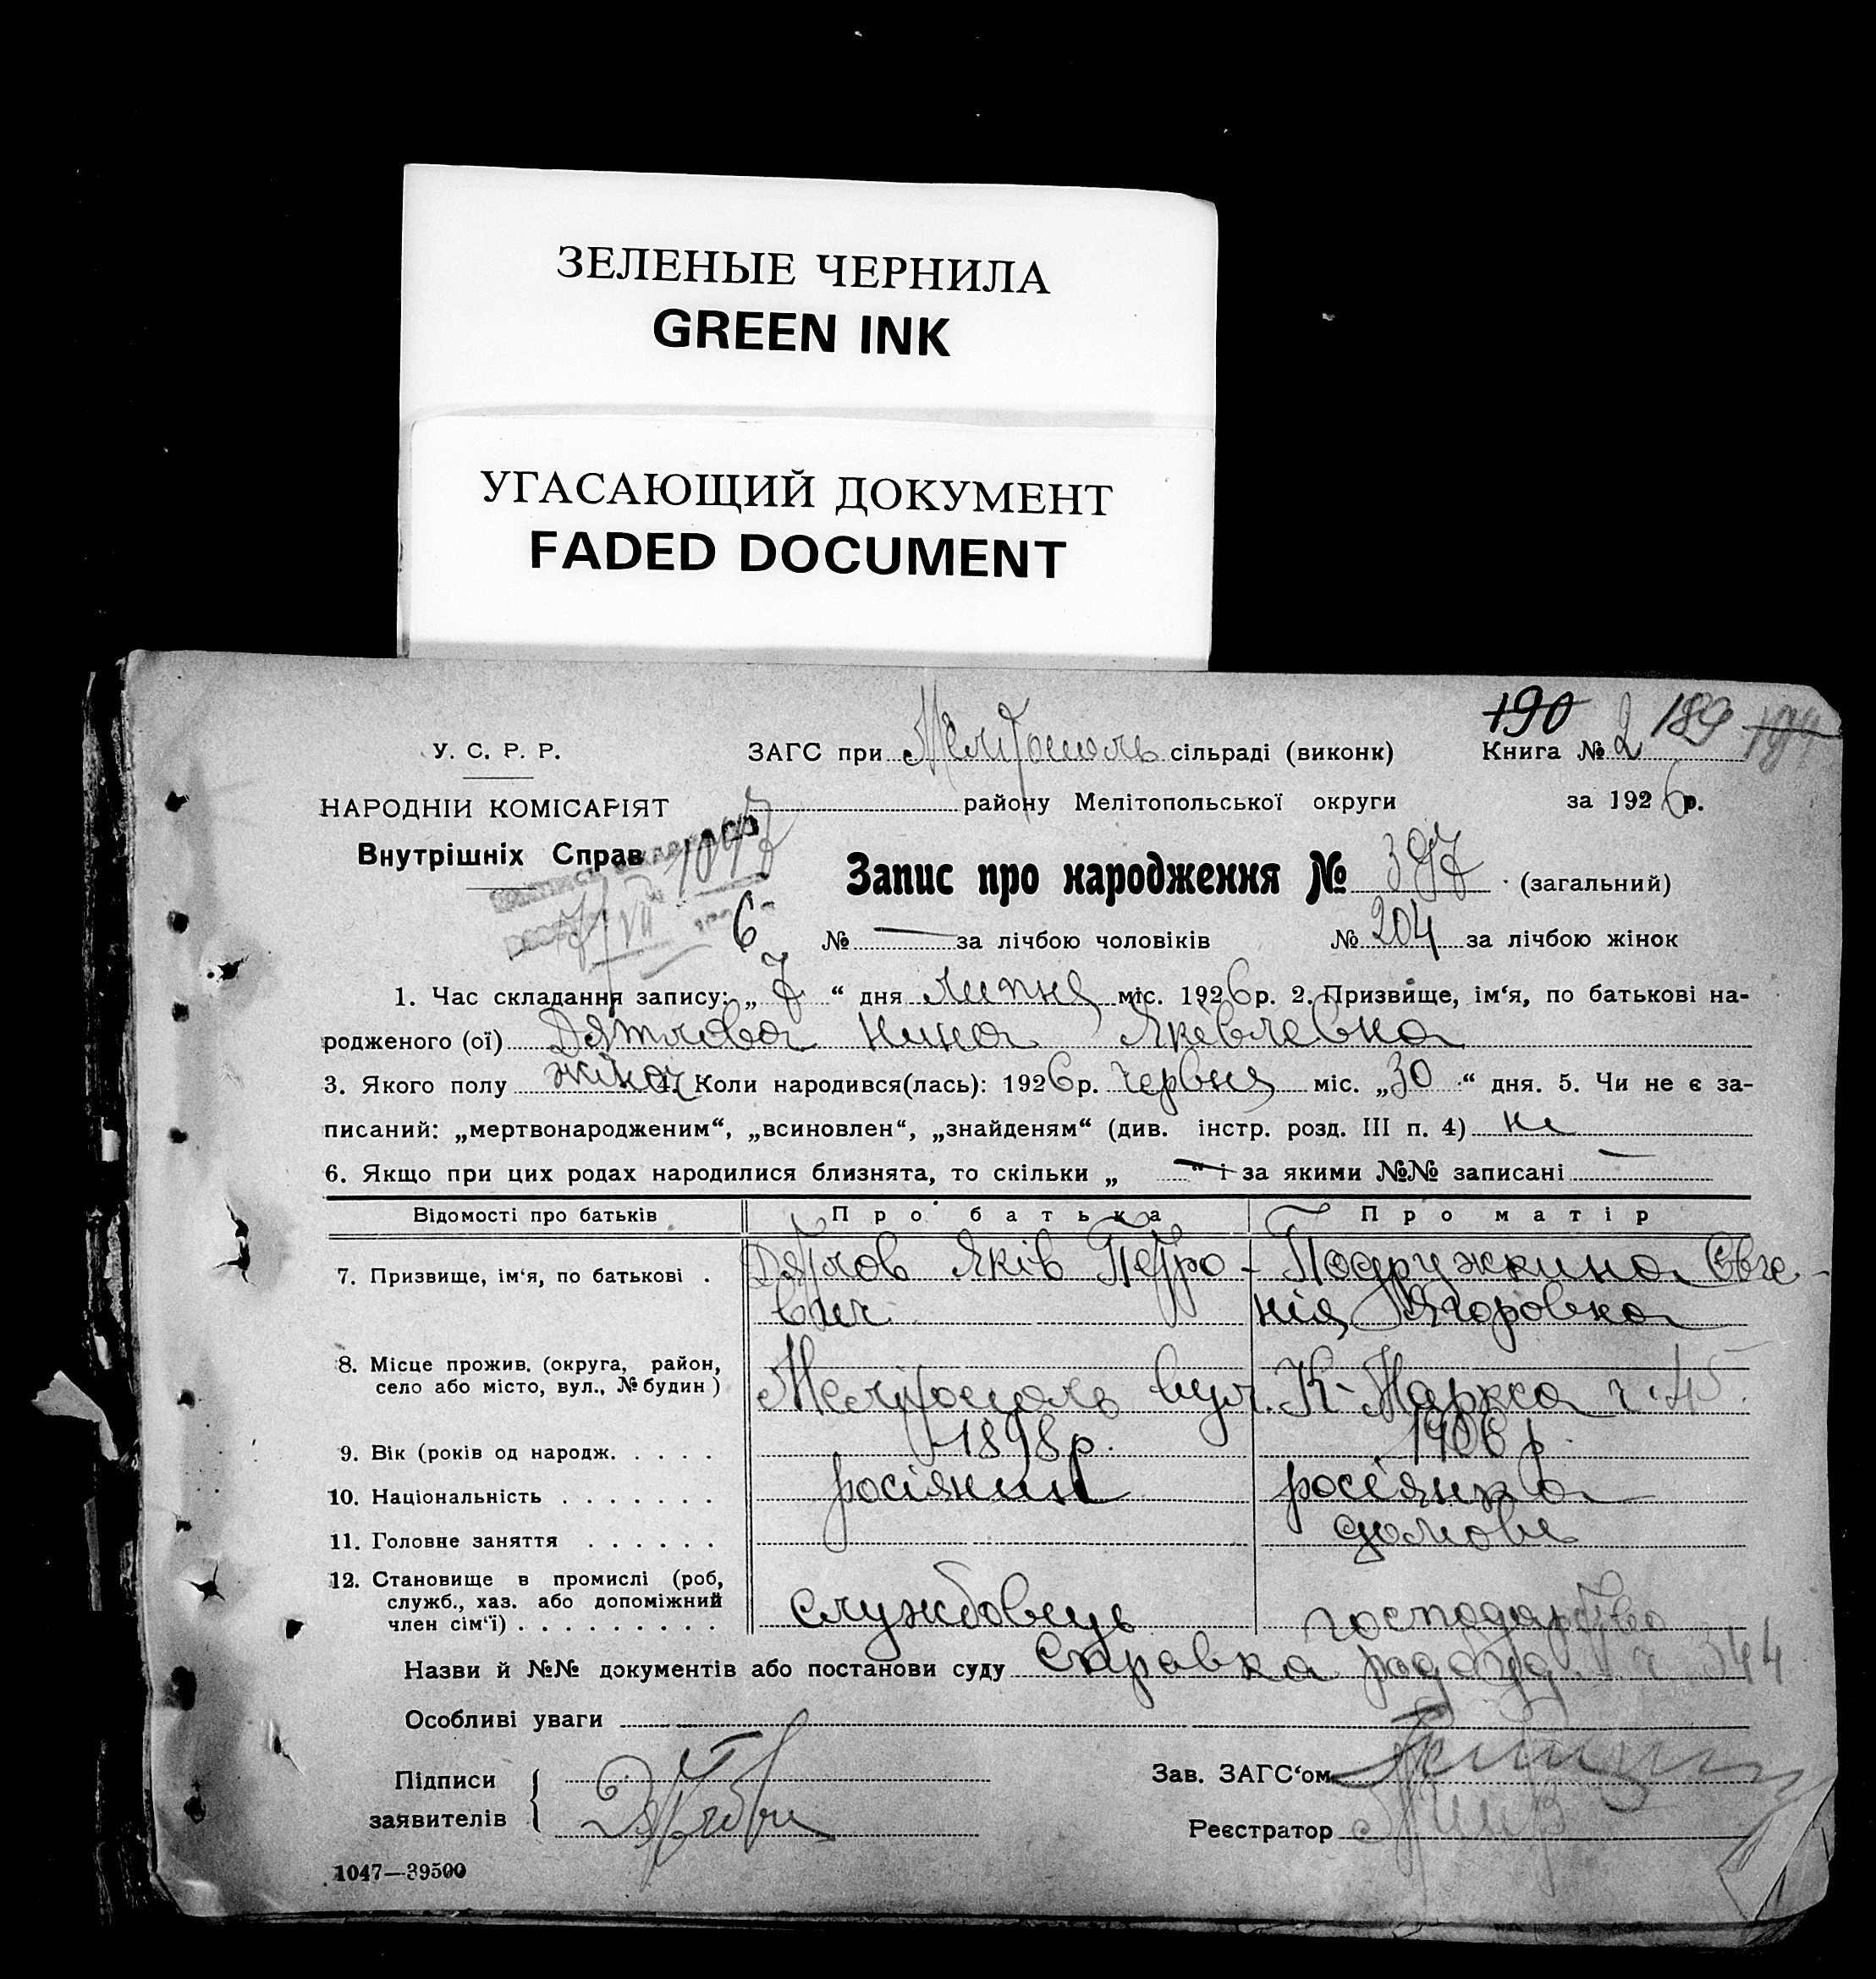 ЗЕЛЕНЫЕ ЧЕРНИЛА
GREEN INK
УГАСАЮЩИЙ ДОКУМЕНТ
FADED DOCUMENT
190 189
У. С. Р. Р. ЗАГС при Мелітополь сільраді (виконк) Книга № 2
НАРОДНІИ КОМІСАРІЯТ району Мелітопольської округи за 1926 р.
Внутрішніх Справ
Запис про народження № 397 (загальний)
№ — за лічбою чоловіків № 204 за лічбою жінок
1. Час складання запису: „ 7 “ дня липня міс. 1926 р. 2. Призвище, ім‘я, по батькові на-
родженого (ої) Дятлова Нина Яківлевна
3. Якого полу жіноч 4. Коли народився(лась): 1926 р. червня міс. „30 “ дня. 5. Чи не є за-
писаний: „мертвонародженим“, „всиновлен“, „знайденям“ (див. інстр. розд. III п. 4) ні
6. Якщо при цих родах народилися близнята, то скільки „ — “ і за якими №№ записані —
Відомості про батьків Про батька Про матір
7. Призвище, ім‘я, по батькові . Дятлов Яків Петро- Подружкина Євге-
вич нія Ягоровна
8. Місце прожив. (округа, район,
село або місто, вул., № будин ) Мелітополь вул. К-Маркса ч. 45
9. Вік (років од народж. . . . . 1898 р. 1906 р.
10. Національність . . . . . . . росіянин росіянка
11. Головне заняття . . . . . . домове
12. Становище в промислі (роб,
служб., хаз. або допоміжний
член сім‘ї) . . . . . . . . . службовець господарство
Назви й №№ документів або постанови суду Справка ч 344
Особливі уваги
Підписи
заявителів
Зав. ЗАГС‘ом
Реєстратор
1047—39500